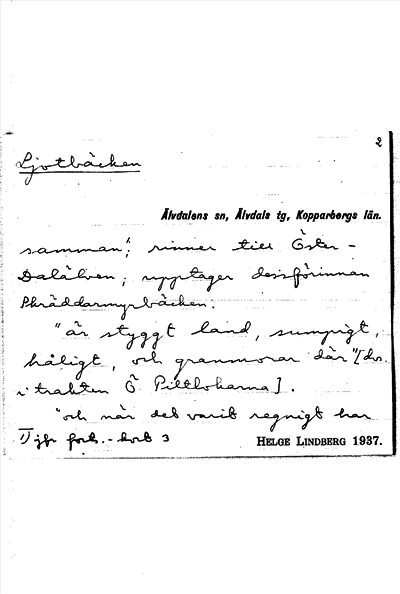 2
Ljotbäcken
Älvdalens sn, Älvdals tg, Kopparbergs län.
samman"; rinner till Öster-
Dalälven; upptager dessförinnan
Skräddarmyrbäcken.
"är styggt land, sumpigt,
håligt, och granmorar där" [dvs.
i trakten Ö
"och när det varit regnigt har
1) jfr forts.-kort 3
HELGE LINDBERG 1937.